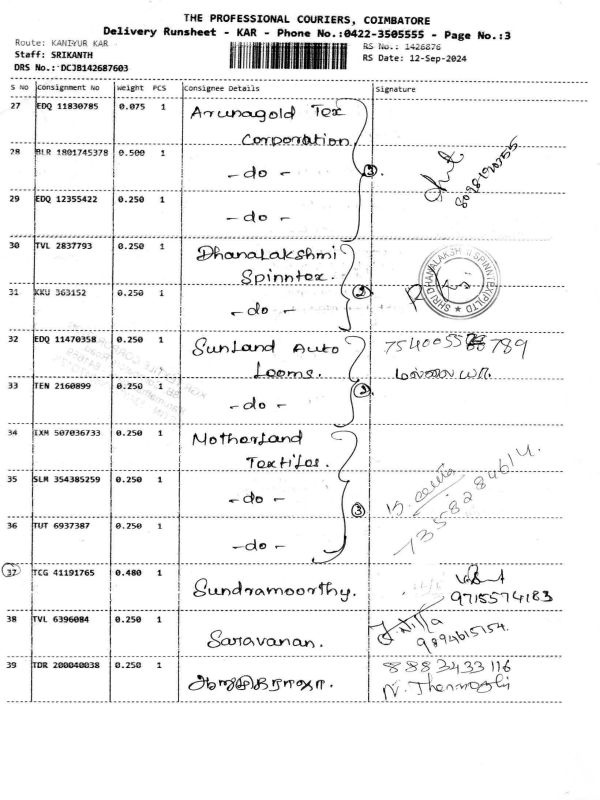 THE PROFESSIONAL COURIERS, COIMBATORE
Delivery Runsheet - KAR - Phone No.:0422-3505555 - Page No.:3
Route: KANIYUR KAR
RS No.: 1426876
Staff: SRIKANTH
RS Date: 12-Sep-2024
DRS No.: DCJB142687603
S No Consignment No Weight PCS Consignee Details Signature
27 EDQ 11830785 0.075 1 Arunagold Tex
Corporation.
28 BLR 1801745378 0.500 1 - do - 3
29 EDQ 12355422 0.250 1 - do -
30 TVL 2837793 0.250 1 Dhanalakshmi
Spinntex.
SHRI DHANALAKSHMI SPINNTEX (P) LTD
31 KKU 363152 0.250 1 - do - 2
32 EDQ 11470358 0.250 1 SunLand Auto
Looms.
33 TEN 2160899 0.250 1 - do - 2
34 IXM 507036733 0.250 1 Motherland
Textiles.
7358284614.
35 SLM 354385259 0.250 1 - do - 3
36 TUT 6937387 0.250 1 - do -
37 TCG 41191765 0.480 1 Sundramoorthy. 9715574183
38 TVL 6396084 0.250 1 Saravanan. 9894615154.
39 TDR 200040038 0.250 1 8883433116